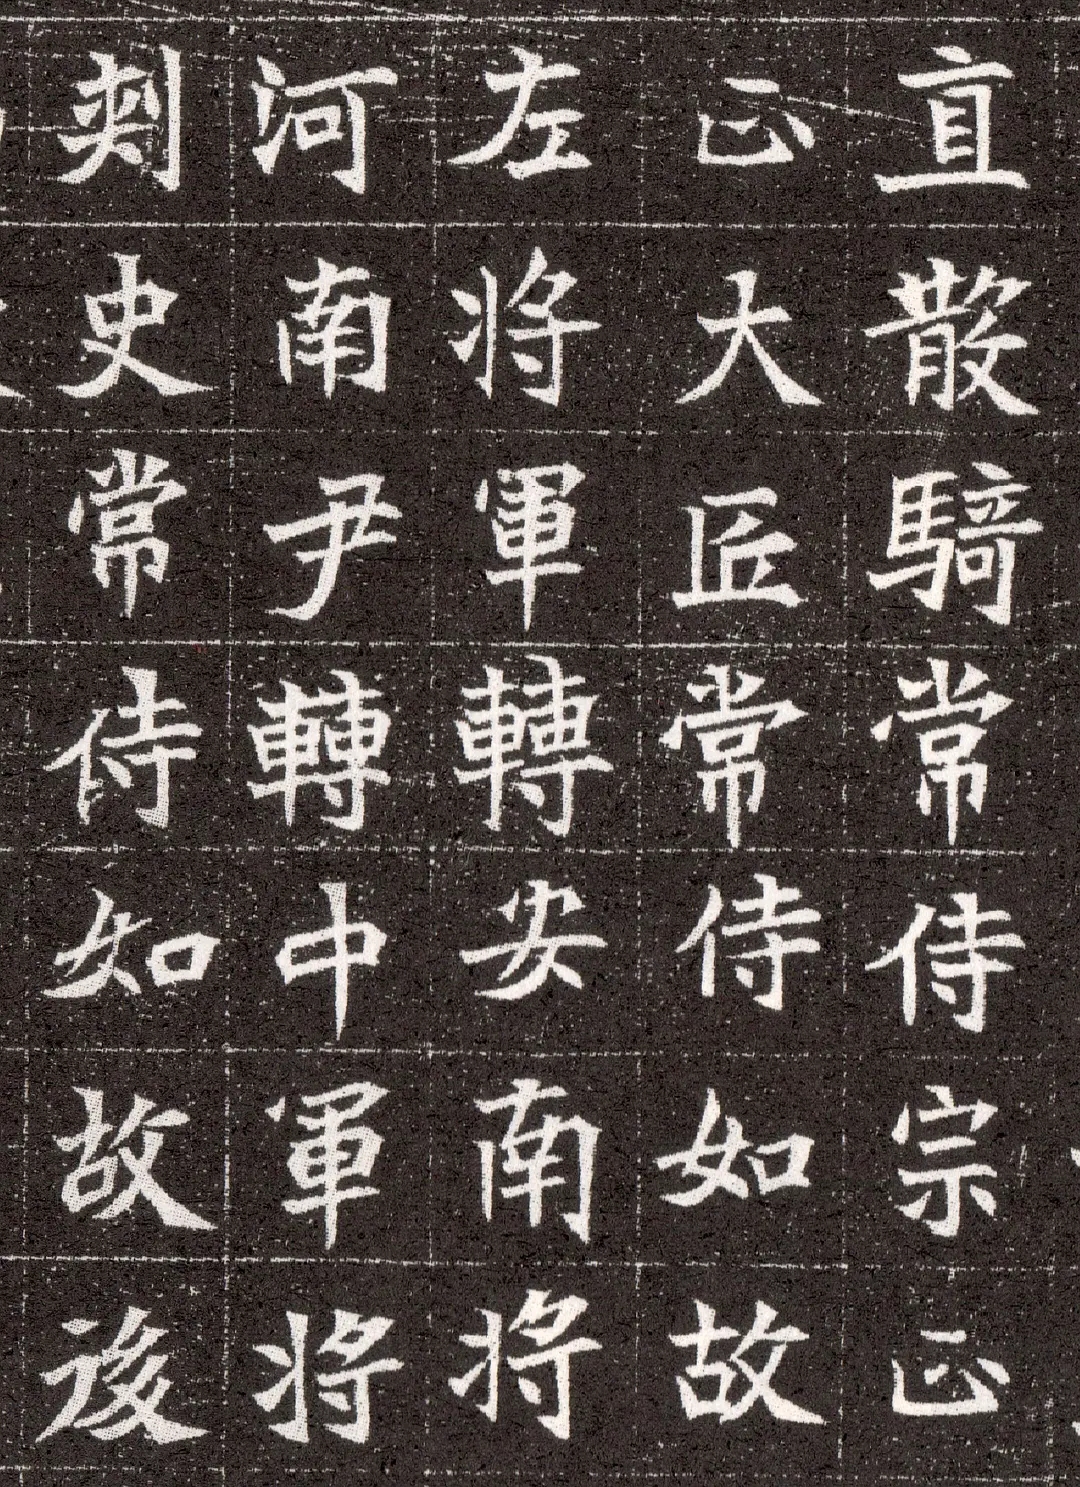 直散騎常侍宗正
正大匠常侍如故
左將軍轉安南將
河南尹轉中軍將
刾史常侍如故後